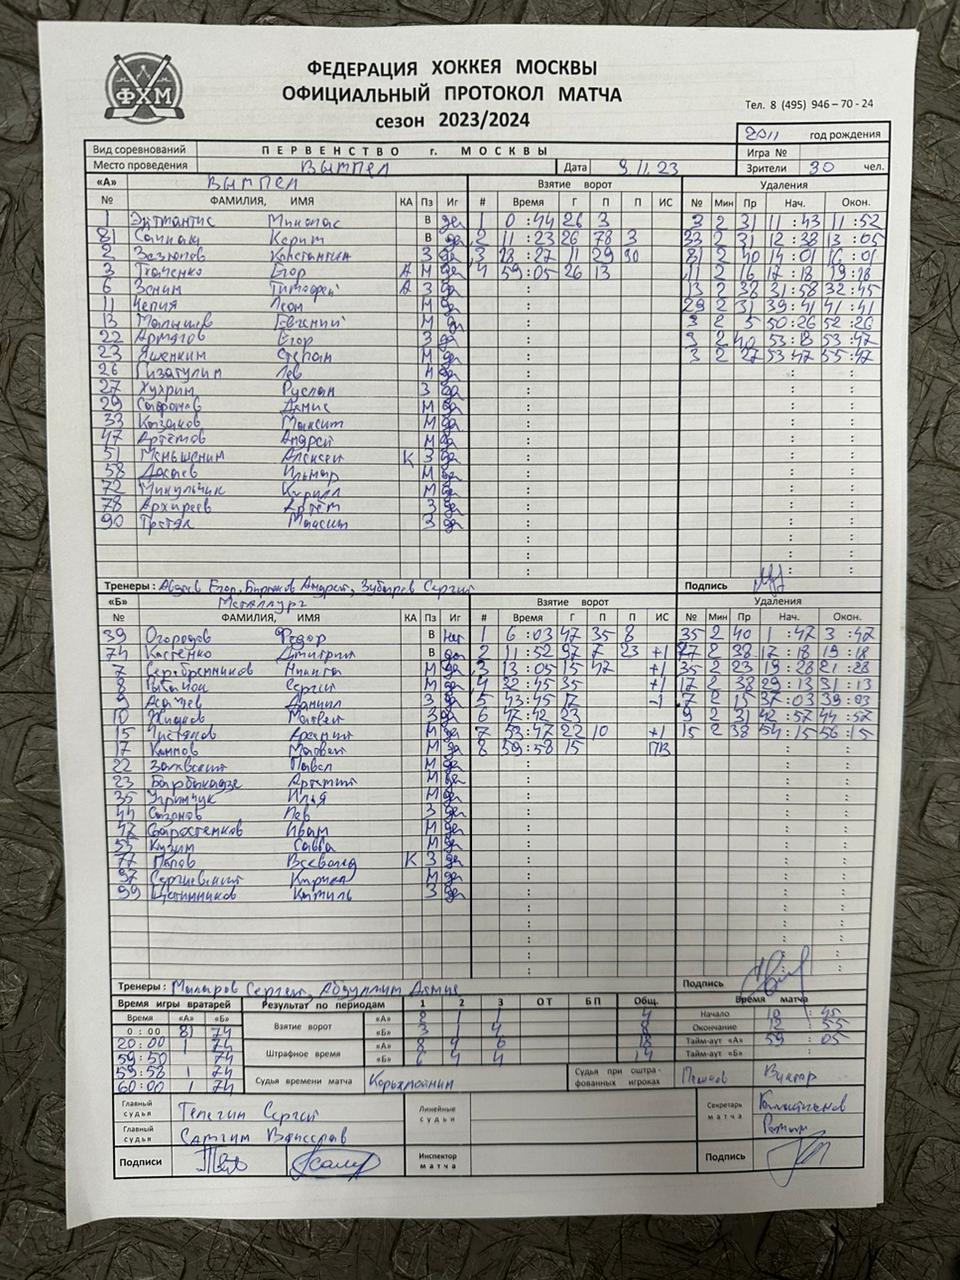 ФХМ
ФЕДЕРАЦИЯ ХОККЕЯ МОСКВЫ
ОФИЦИАЛЬНЫЙ ПРОТОКОЛ МАТЧА
сезон 2023/2024
Тел. 8 (495) 946 – 70 - 24
2011 год рождения
Вид соревнований ПЕРВЕНСТВО г. МОСКВЫ Игра №
Место проведения Вымпел Дата 9.11.23 Зрители 30 чел.
«А» Вымпел Взятие ворот Удаления
№ ФАМИЛИЯ, ИМЯ КА Пз Иг # Время Г П П ИС № Мин Пр Нач. Окон.
1 Миколас В да 1 0:44 26 3 3 2 31 11:43 11:52
81 Керим В да 2 11:23 26 78 3 33 2 31 12:38 13:05
2 Константин З да 3 28:27 11 29 90 81 2 40 14:01 16:01
3 Ткаченко Егор А М да 4 59:05 26 13 11 2 16 17:18 19:18
6 Зонин Тимофей А З да 13 2 38 31:58 32:45
11 Чепия Леон М да 29 2 31 39:41 41:41
13 Малышев Евгений М да 3 2 5 50:26 52:26
22 Егор З да 9 2 40 53:18 53:47
23 Яшенкин Степан М да 3 2 27 53:47 55:47
26 Гизатулин Лев Н да
27 Хухрин Руслан З да
29 Сафронов Денис М да
33 Казаков Максим М да
47 Артёмов Андрей М да
51 Меньшенин Алексей К З да
58 Ильмар М да
72 Микульчик Кирилл М да
78 Архиреев Артём З да
90 Третяк Максим З да
Тренеры: Авдеев Егор, Бирюков Андрей, Зубарев Сергей Подпись
«Б» Металлург Взятие ворот Удаления
№ ФАМИЛИЯ, ИМЯ КА Пз Иг # Время Г П П ИС № Мин Пр Нач. Окон.
39 Огородов Федор В Нет 1 6:03 47 35 8 35 2 40 1:47 3:47
74 Костенко Дмитрий В да 2 11:52 97 7 23 +1 77 2 38 17:18 19:18
7 Серебренников Никита М да 3 13:05 15 47 +1 35 2 23 19:28 21:28
8 Сергей М да 4 32:45 35 +1 17 2 38 29:13 31:13
9 Даниил З да 5 43:45 17 -1 7 2 15 37:03 39:03
10 Жидков Матвей З да 6 47:42 23 9 2 31 42:57 44:57
15 Чистяков Арсений М да 7 53:47 22 10 +1 15 2 38 54:15 56:15
17 Климов Матвей М да 8 59:58 15 ПВ
22 Павел М да
23 Барбакадзе Артемий М да
35 Угринчук Илья М да
44 Сазонов Лев З да
47 Сыростенков Иван М да
55 Кузин Савва М да
77 Попов Всеволод К З да
97 Сергиевский Кирилл М да
99 Щетинников Камиль З да
Тренеры: Макаров Сергей, Абдуллин Денис Подпись
Время игры вратарей Результат по периодам 1 2 3 ОТ БП Общ. Время матча
Время «А» «Б» Взятие ворот «А» 2 1 1 4 Начало 10 45
0:00 81 74 «Б» 3 1 4 8 Окончание 12 55
20:00 1 74 Штрафное время «А» 8 4 6 18 Тайм-аут «А» 59 05
59:50 74 «Б» 6 4 4 14 Тайм-аут «Б» :
59:58 1 74 Судья времени матча Судья при оштрафованных игроках Виктор
60:00 1 74
Главный судья Телегин Сергей Линейные судьи Секретарь матча
Главный судья
Подписи Инспектор матча Подпись